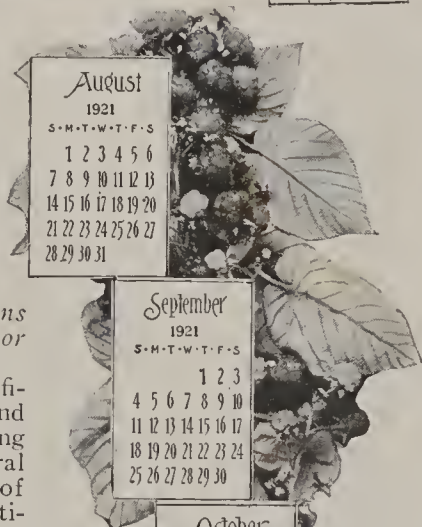 August
1921
S·M·T·W·T·F·S
1 2 3 4 5 6
7 8 9 10 11 12 13
14 15 16 17 18 19 20
21 22 23 24 25 26 27
28 29 30 31
September
1921
S·M·T·W·T·F·S
1 2 3
4 5 6 7 8 9 10
11 12 13 14 15 16 17
18 19 20 21 22 23 24
25 26 27 28 29 30
October
ns
or
fi-
nd
ng
ral
of
ti-